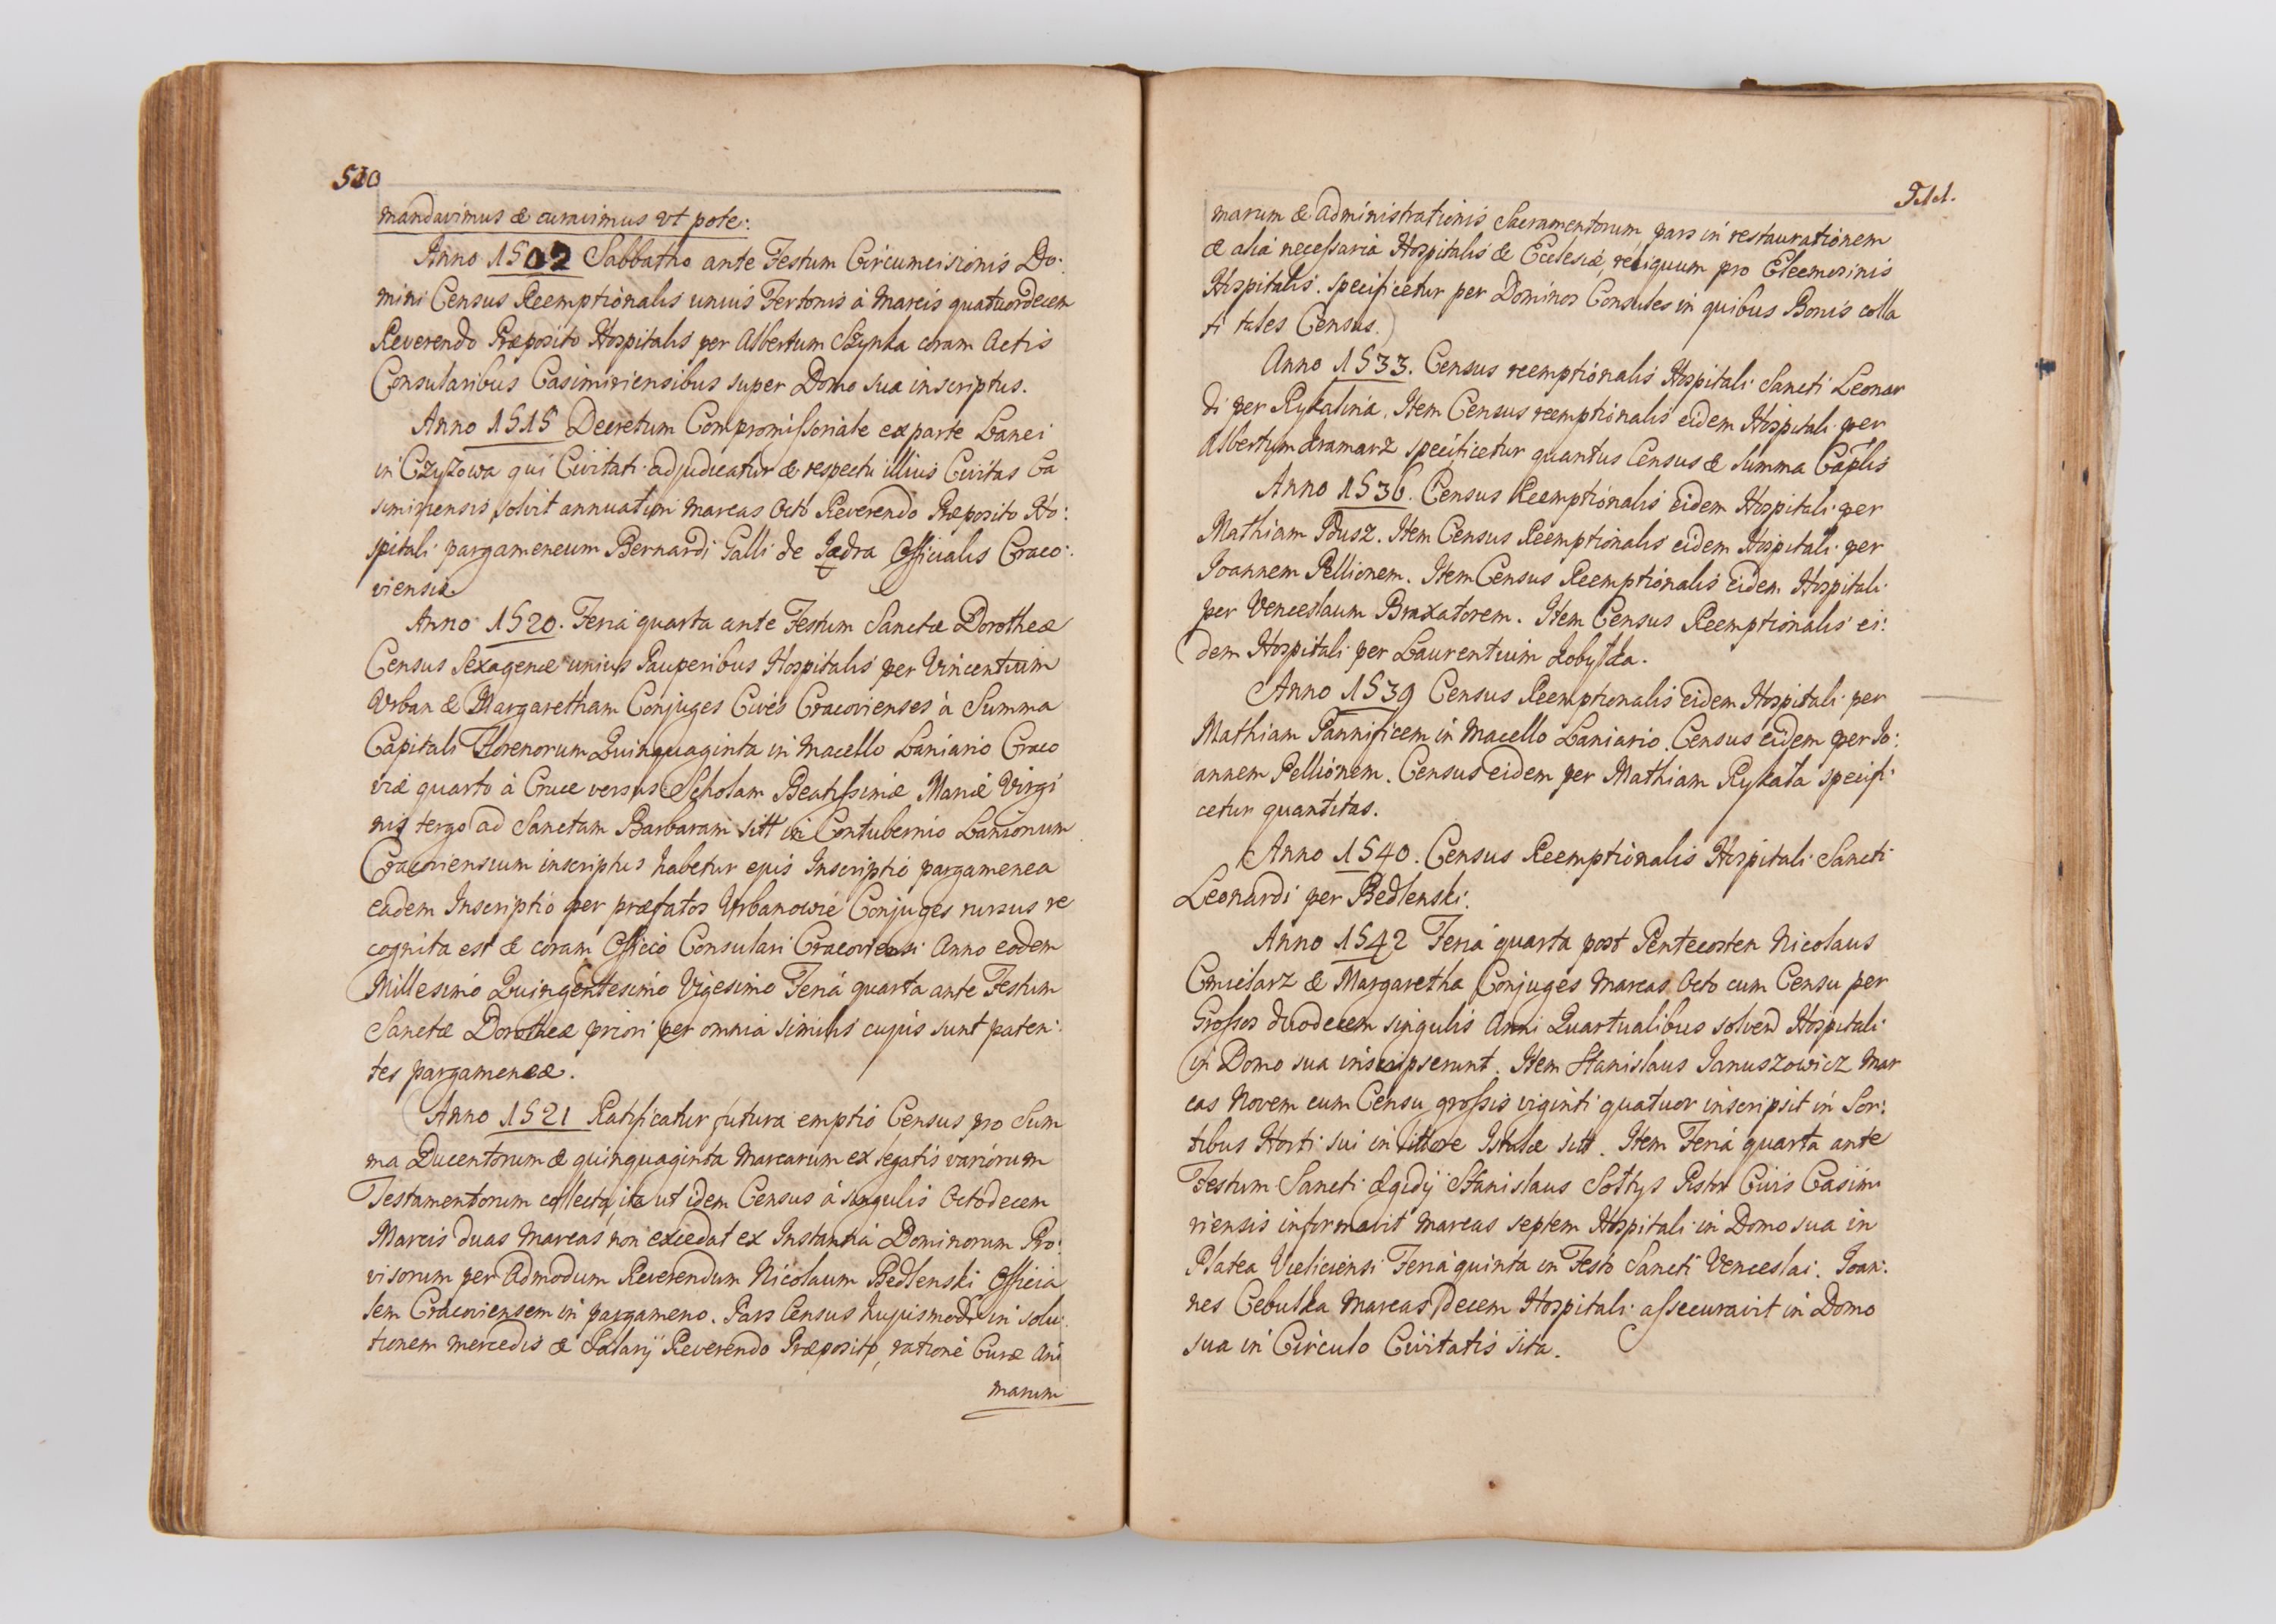 510
mandavimus & curavimus vt pote:
Anno 1502 Sabbatho ante Festum Circumcisionis Do:
mini Census Reemptionalis unius Fertonis à Marcis quatuordecem
Reverendo Præposito Hospitalis per Albertum Szynka coram Actis
Consularibus Casimiriensibus super Domo sua inscriptus.
Anno 1515 Decretum Compromissoriale ex parte Lanei
in Czyżowa qui Civitati adjudicatur & respectu illius Civitas Ca
simiriensis solvit annuatim Marcas Octo Reverendo Præposito Ho:
spitali pargameneum Bernardi Galli de Jadra Officialis Craco:
viensis.
Anno 1520. Feria quarta ante Festum Sanctæ Dorotheæ
Census Sexagenæ unius Pauperibus Hospitalis per Vincentium
Vrban & Margaretham Conjuges Cives Cracovienses à Summa
Capitali Florenorum Quinquaginta in Macello Laniario Craco
viæ quarto à Cruce versus Scholam Beatissimæ Mariæ Virgi
nis tergo ad Sanctam Barbaram sitt in Contubernio Lanionum
Cracoviensium inscriptus habetur ejus Inscriptio pargamenea
eadem Inscriptio per præfatos Urbanowie Conjuges rursus re
cognita est & coram Officio Consulari Cracoviensi Anno eodem
Millesimo Quingentesimo Vigesimo Feria quarta ante Festum
Sanctæ Dorotheæ priori per omnia similis cujus sunt paten:
tes pargameneæ.
Anno 1521 Ratificatur futura emptio Census pro Sum
ma Ducentorum & quinquaginta Marcarum ex legatis variorum
Testamentorum collecta, ita ut idem Census à singulis Octodecem
Marcis duas Marcas non excedat ex Instantia Dominorum Pro:
visorum per Admodum Reverendum Nicolaum Bedlenski Officia
lem Cracoviensem in pargameno. Pars Census hujusmodi in solu:
tionem mercedis & Salarij Reverendo Præposito, ratione Curæ Ani
marum
511.
marum & administrationis Sacramentorum, pars in restaurationem
& alia necessaria Hospitalis & Ecclesiæ, reliquum pro Eleemosinis
Hospitalis. specificetur per Dominos Consules in quibus Bonis colla
ti tales Census.)
Anno 1533. Census reemptionalis Hospitali Sancti Leonar
di per Rykalina. Item Census reemptionalis eidem Hospitali per
Albertum kramarz specificetur quantus Census & summa Caplis
Anno 1536. Census Reemptionalis eidem Hospitali per
Mathiam Dusz. Item Census Reemptionalis eidem Hospitali per
Joannem Pellionem. Item Census Reemptionalis eidem Hospitali
per Venceslaum Braxatorem. Item Census Reemptionalis ei:
dem Hospitali per Laurentium kobyłka.
Anno 1539 Census Reemptionalis eidem Hospitali per
Mathiam Pannificem in Macello Laniario. Census eidem per Jo:
annem Pellionem. Census eidem per Mathiam Rykała specifi:
cetur quantitas.
Anno 1540. Census Reemptionalis Hospitali Sancti
Leonardi per Bedlenski.
Anno 1542 Feria quarta post Pentecosten Nicolaus
Cmielarz & Margaretha Conjuges Marcas Octo cum Censu per
Grossos duodecem singulis Anni Quartualibus solvend Hospitali
in Domo sua inscripserunt. Item Stanislaus Januszowicz Mar
cas Novem cum Censu grossis viginti quatuor inscripsit in Sor:
tibus Horti sui in littore Istulæ sitt. Item Feria quarta ante
Festum Sancti Ægidij Stanislaus Sołtys Pistor Civis Casimi
riensis informavit Marcas septem Hospitali in Domo sua in
Platea Vieliciensi Feria quinta in Festo Sancti Venceslai. Joan:
nes Cebulka Marcas Decem Hospitali assecuravit in Domo
sua in Circulo Civitatis sita.